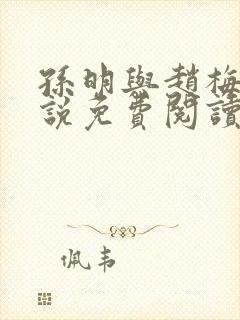 孫明與趙梅
說免費閱讀
佩韦